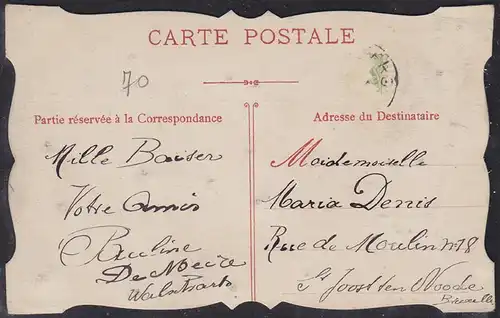 CARTE POSTALE
70
Partie réservée à la Correspondance
Adresse du Destinataire
Mille Baiser
Votre Amis
Pauline
De Meire
Mademoiselle
Maria Denis
Rue de Moulin n 78
St Joost ten Noode
Bruxelles